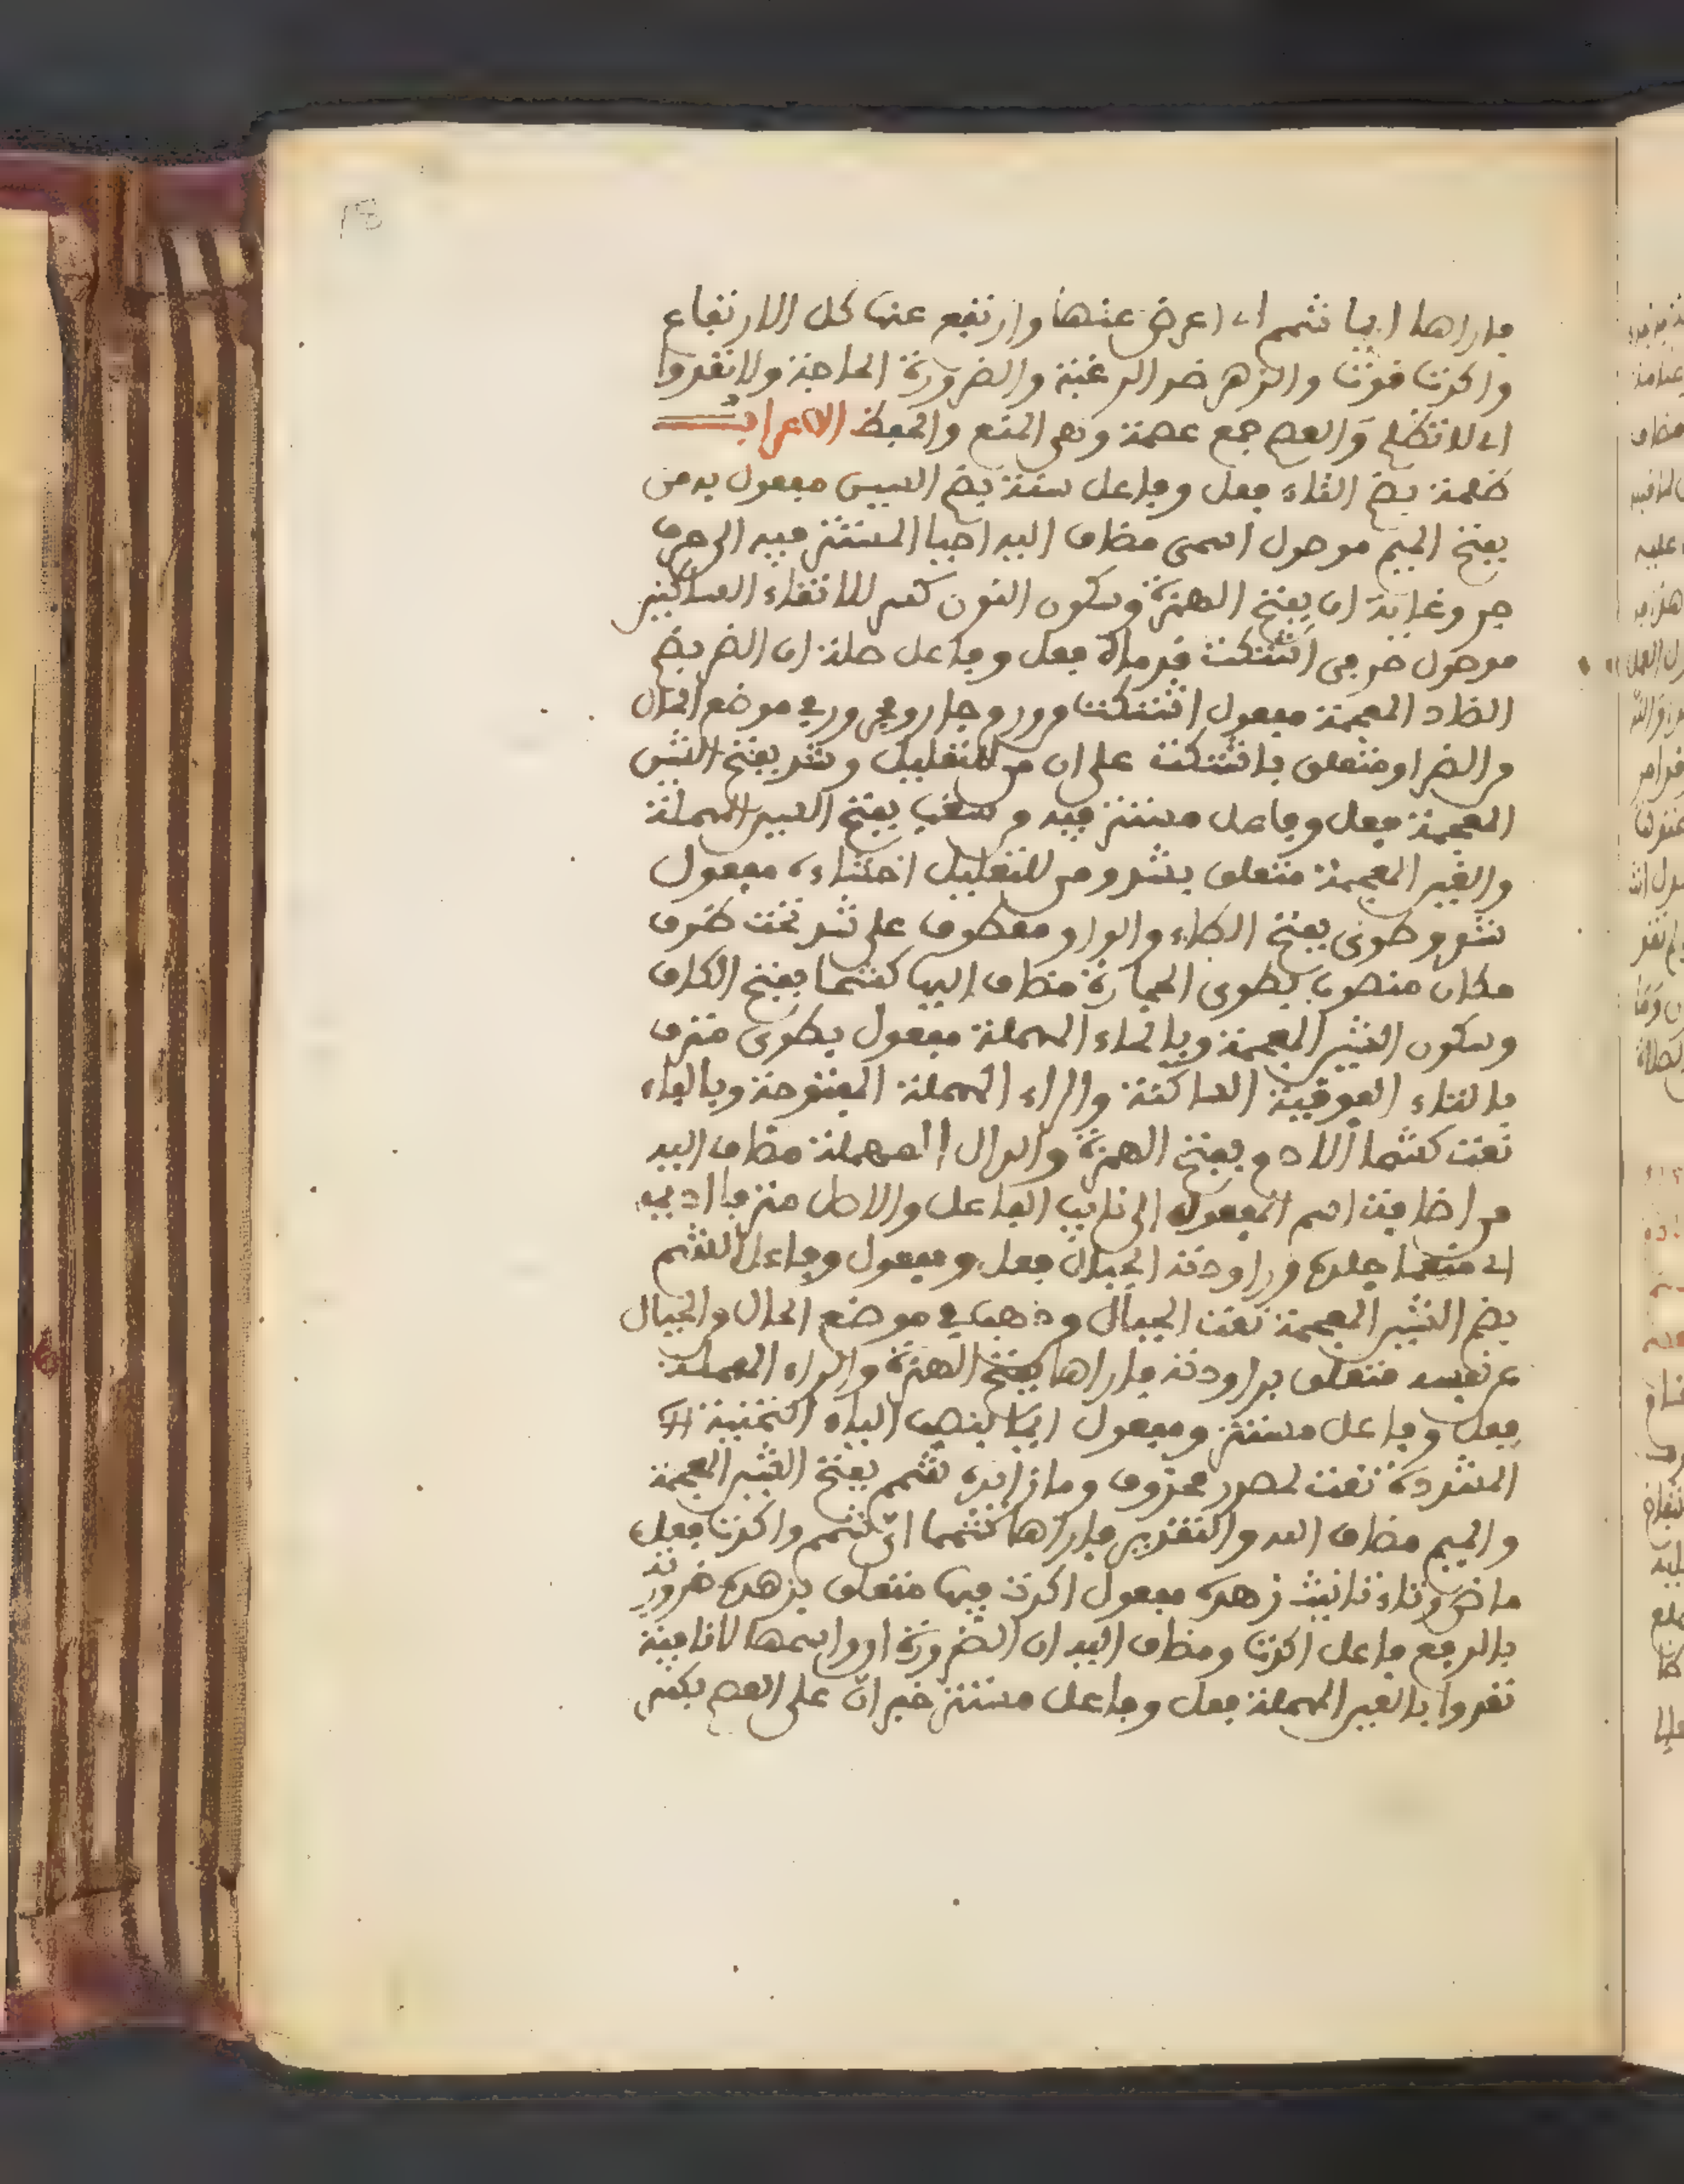 فاراها ايما شمم اي اعرض عنها وارتفع عنها كل الارتفاع
واكدت قوت والزهد ضد الرغبة والضرورة الحاجة ولا تعدوا
اي لا تظلم والعصم جمع عصمة وهي المنع والحفظ الاعراب
ظلمت بضم التاء فعل وفاعل سنة بضم السين مفعول به من
بفتح الميم موصول اسمي مضاف اليه احيا المستتر فيه الى حرف
جر وغاية ان بفتح الهمزة وسكون النون كسر لالتقاء الساكنين
موصول حرفي اشتكت قدماه فعل وفاعل صلة ان الضر بضم
الضاد المعجمة مفعول اشتكت من ورم جار ومجرور في موضع الحال
من الضر او متعلق باشتكت على ان من للتعليل وشد بفتح الشين
المعجمة فعل وفاعل مستتر فيه من سغب بفتح السين المهملة
والغين المعجمة متعلق بشد ومن للتعليل احشاءه مفعول
شد وطوى بفتح الطاء والواو معطوف على شد تحت ظرف
مكان منصوب بطوى الحجارة مضاف اليها كشحا بفتح الكاف
وسكون الشين المعجمة وبالحاء المهملة مفعول بطوى مترف
بالتاء الفوقية الساكنة والراء المهملة المفتوحة وبالفاء
نعت كشحا الادم بفتح الهمزة والدال المهملة مضاف اليه
من اضافة اسم المفعول الى نايب الفاعل والاصل مترفا اديمه
اي منعما جلده وراودته الجبال فعل ومفعول وفاعل الشم
بضم الشين المعجمة نعت الجبال من ذهب في موضع الحال من الجبال
عن نفسه متعلق براودته فاراها بفتح الهمزة والراء المهملة
فعل وفاعل مستتر ومفعول ايما بنصب الياء التحتية
المشددة نعت لمصدر محذوف وما زايدة شمم بفتح الشين المعجمة
والميم مضاف اليه والتقدير فاراها شمما اي شمم واكدت فعل
ماض وتاء تانيث زهده مفعول اكدت فيها متعلق بزهده ضرورته
بالرفع فاعل اكدت ومضاف اليه ان الضرورة ان واسمها لا نافية
تعدوا بالعين المهملة فعل وفاعل مستتر خبر ان على العصم بكسر